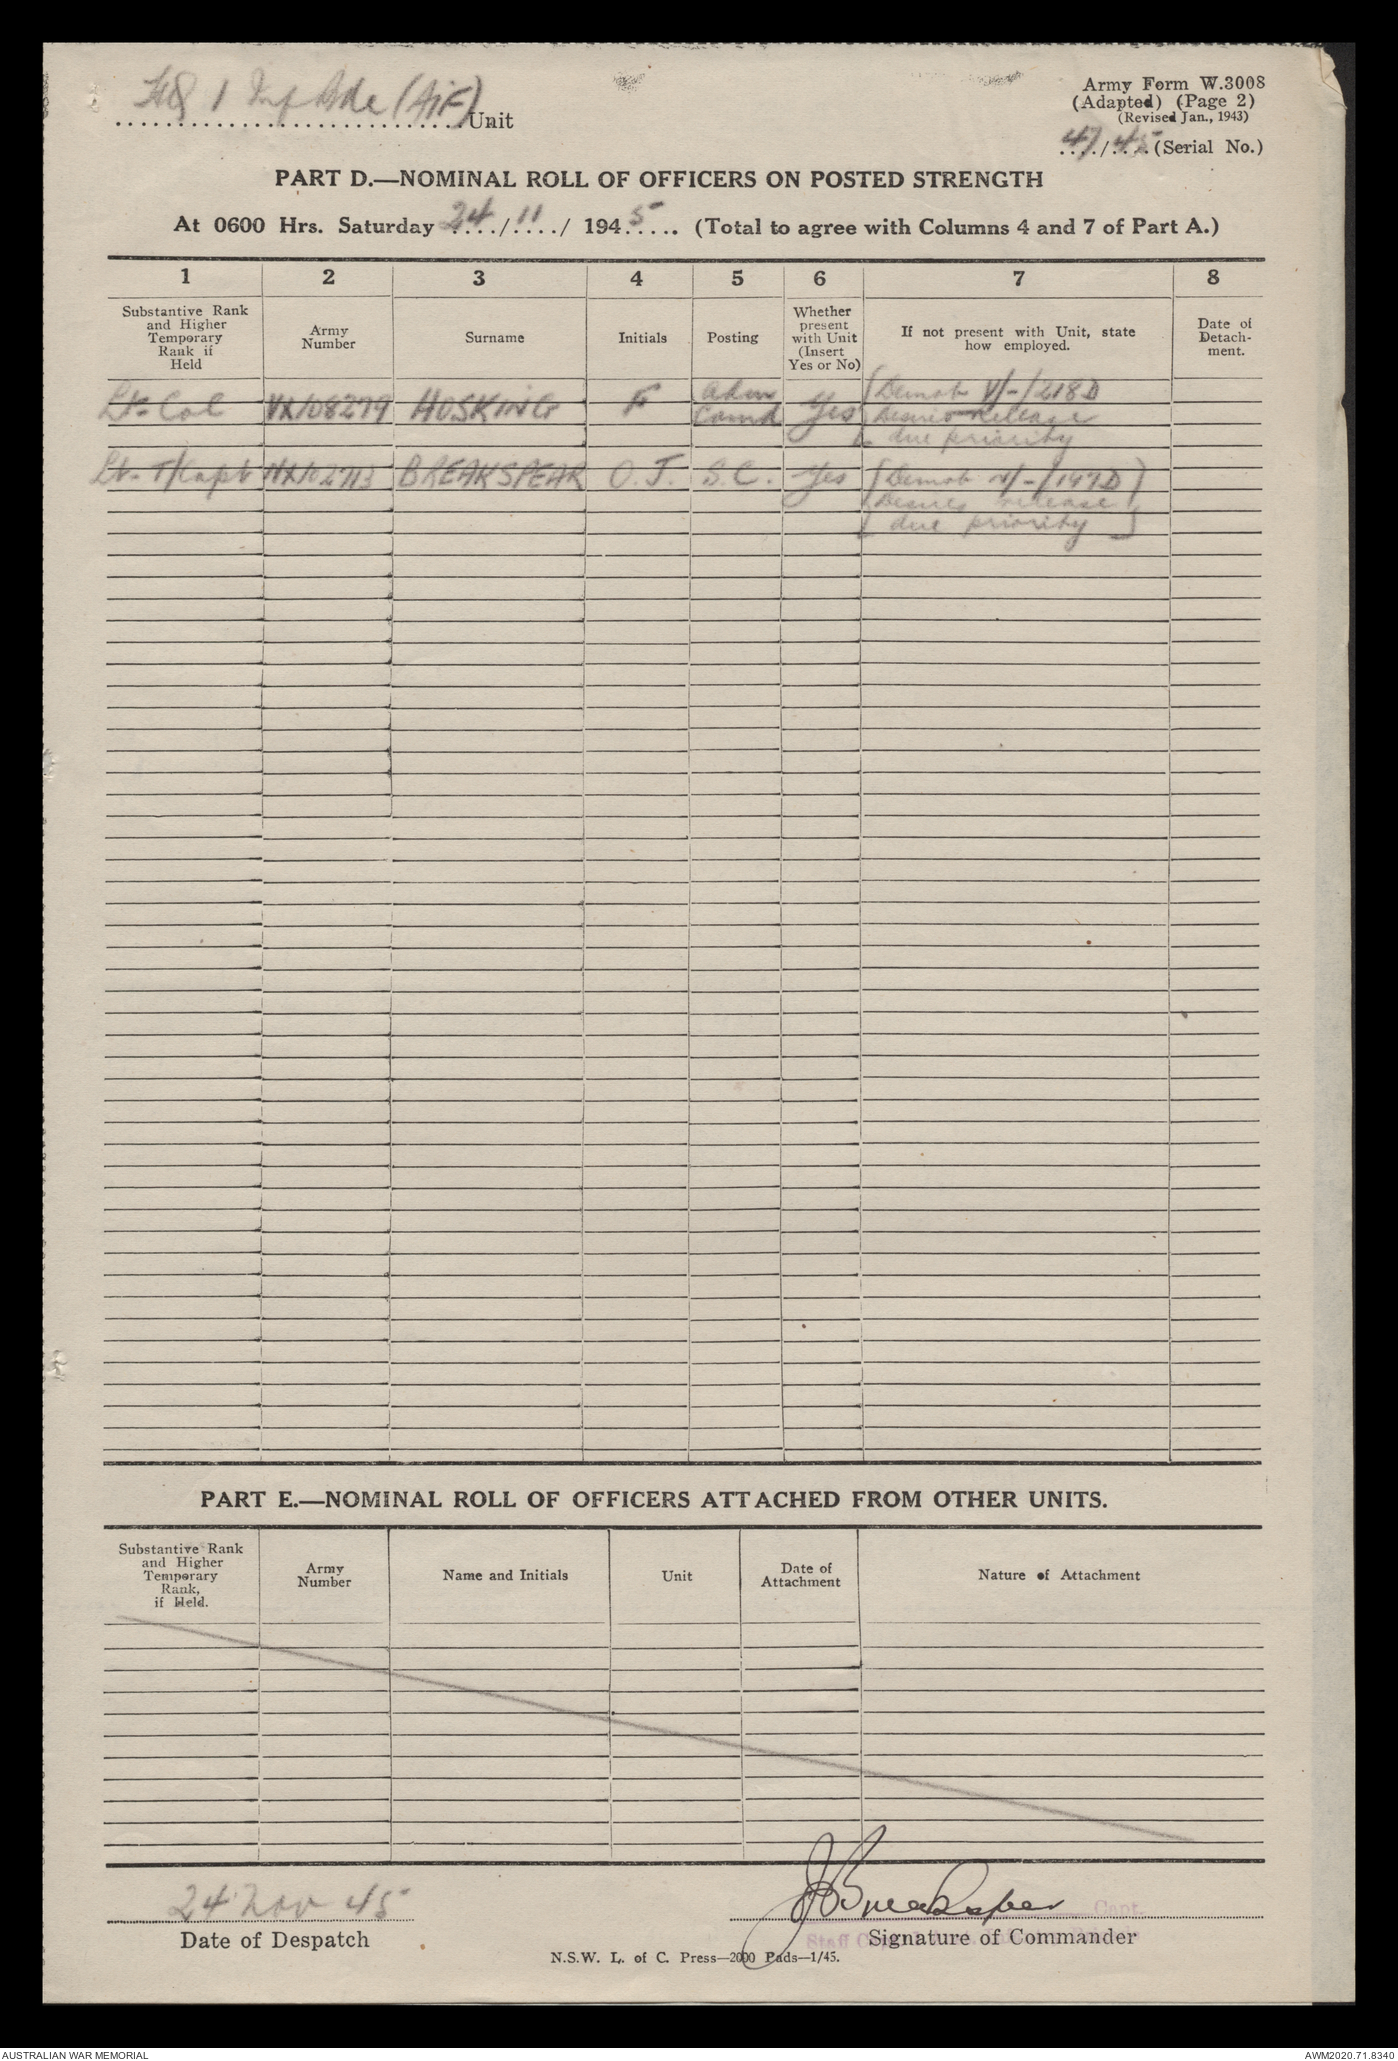 HQ 1 Inf Bde (AIF) Unit
Army Form W.3008
(Adapted) (Page 2)
(Revised Jan., 1943)
47/45 (Serial No.)
PART D.—NOMINAL ROLL OF OFFICERS ON POSTED STRENGTH
At 0600 Hrs. Saturday 24/11/1945 (Total to agree with Columns 4 and 7 of Part A.)
1 2 3 4 5 6 7 8
Substantive Rank
and Higher
Temporary
Rank if
Held
Army
Number
Surname
Initials
Posting
Whether
present
with Unit
(Insert
Yes or No)
If not present with Unit, state
how employed.
Date of
Detach-
ment.
Lt-Col VX108279 HOSKING F Adm Comd Yes
Demob V/-/218D
Desires release
due priority
Lt. T/Capt NX102713 BREAKSPEAR O.J. S.C. Yes
Demob N/-/147D
Desires release
due priority
PART E.—NOMINAL ROLL OF OFFICERS ATTACHED FROM OTHER UNITS.
Substantive Rank
and Higher
Temporary
Rank,
if Held.
Army
Number
Name and Initials
Unit
Date of
Attachment
Nature of Attachment
24 Nov 45
OJBreakspear Capt.
Staff
Date of Despatch
Signature of Commander
N.S.W. L. of C. Press—2000 Pads—1/45.
AUSTRALIAN WAR MEMORIAL
AWM2020.71.8340